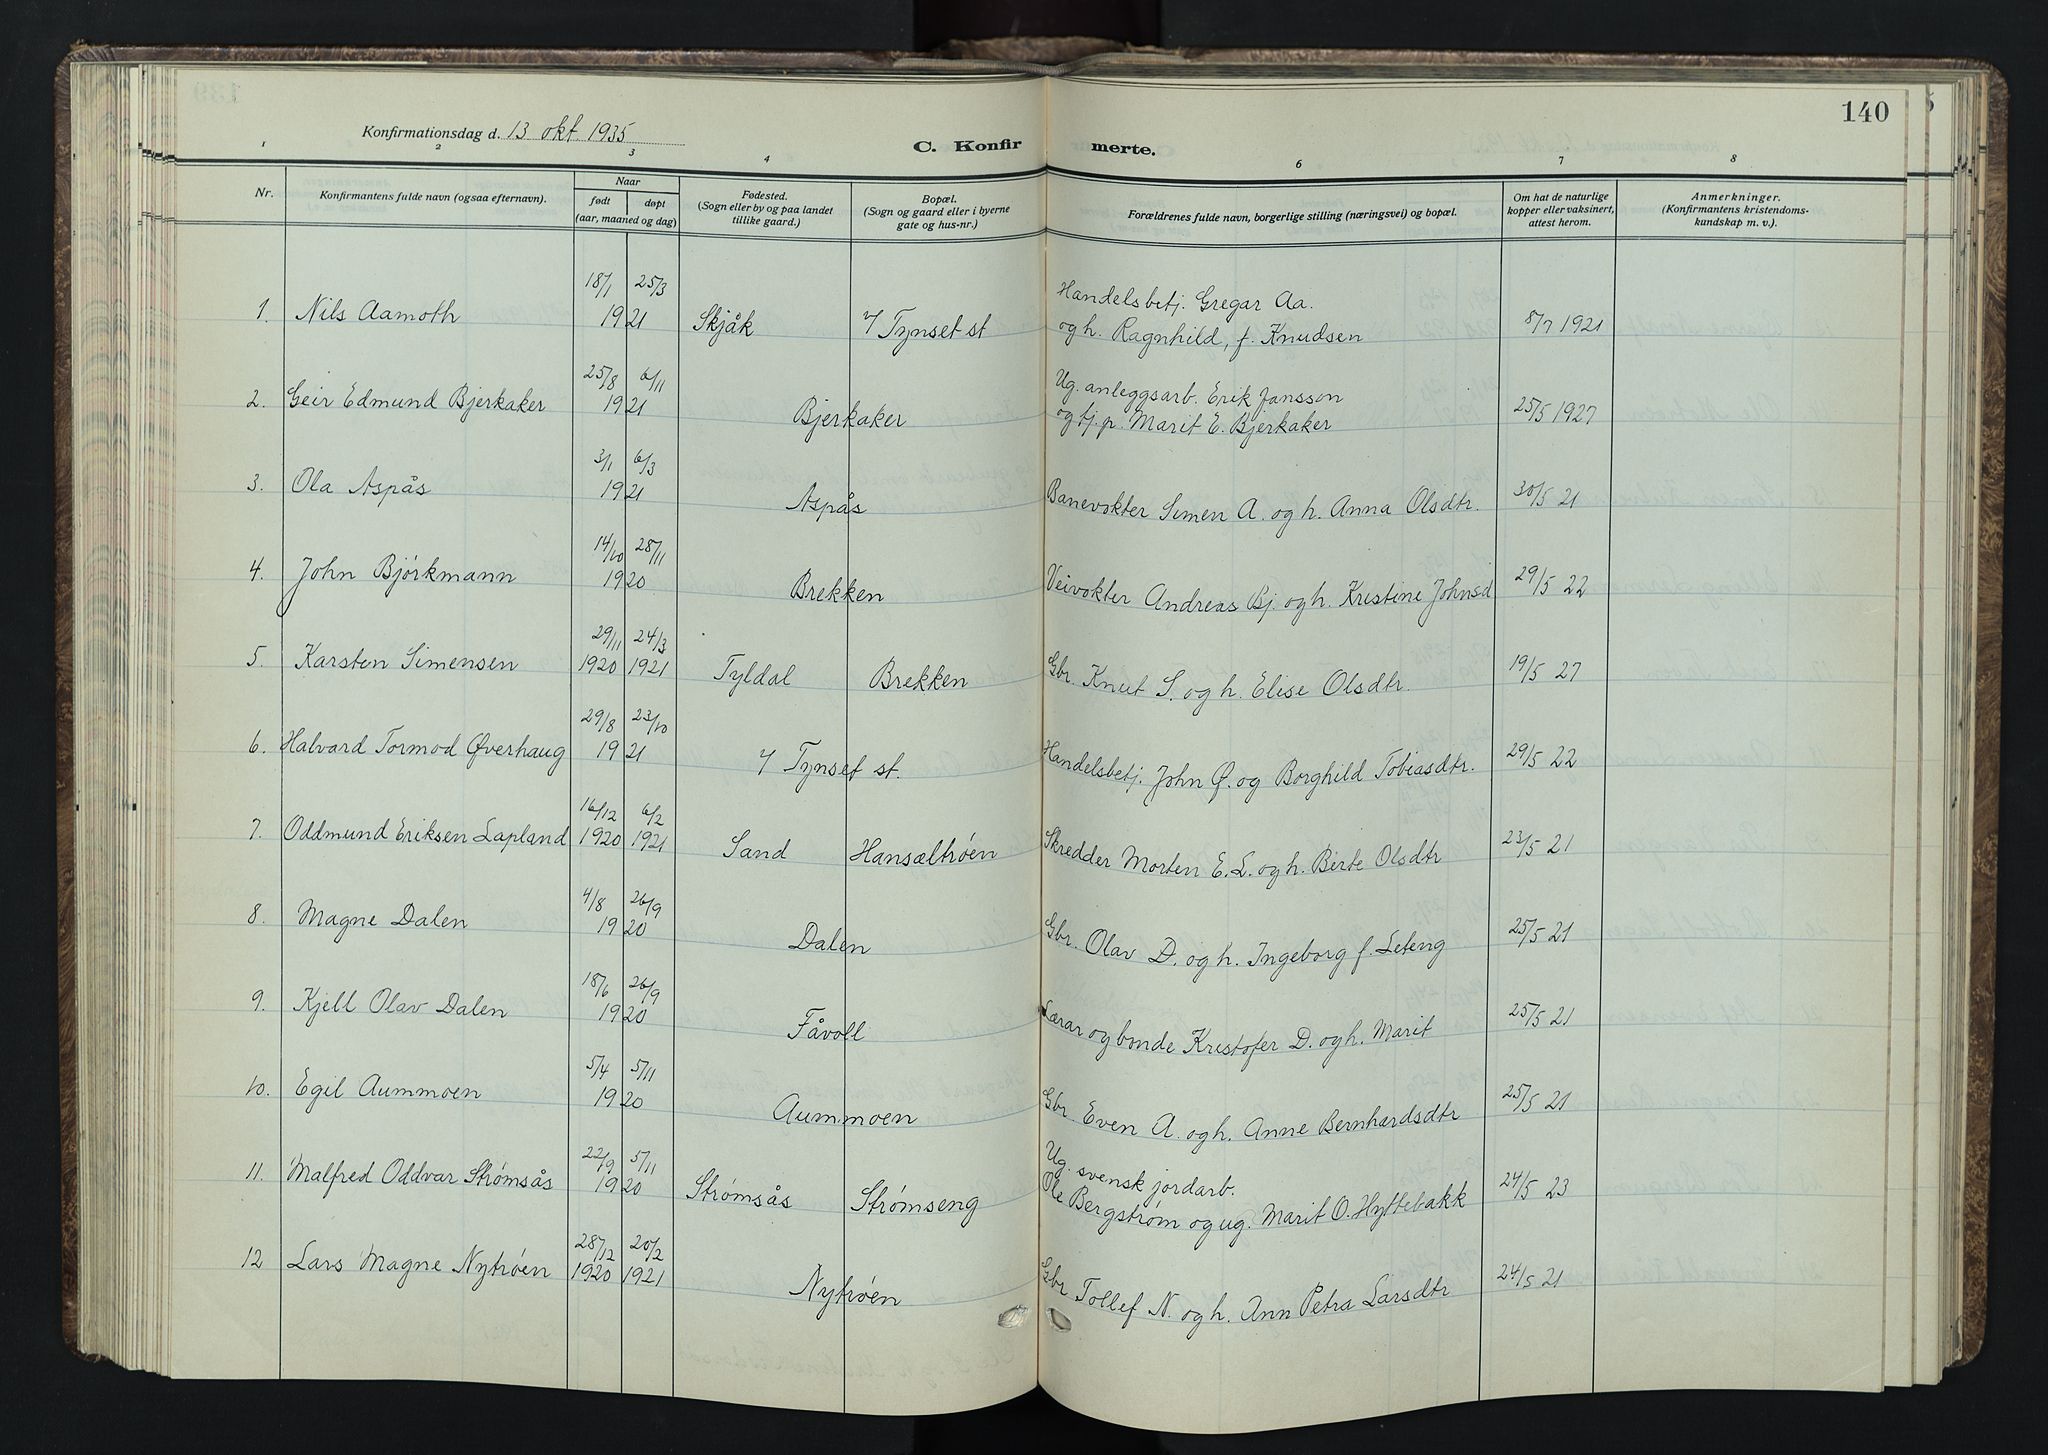 140
Konfirmationsdag d. 13 okt. 1935
C. Konfirmerte.
1 2 3 4 5 6 7 8
Nr. Konfirmantens fulde navn (ogsaa efternavn). Naar født døpt (aar, maaned og dag) Fødested. (Sogn eller by og paa landet tillike gaard.) Bopæl. (Sogn og gaard eller i byerne gate og hus-nr.) Forældrenes fulde navn, borgerlige stilling (næringsvei) og bopæl. Om hat de naturlige kopper eller vaksinert, attest herom. Anmerkninger. (Konfirmantens kristendomskundskap m. v.).
18/1 25/3 Handelsbetj. Gregar Aa.
1. Nils Aamoth 1921 Skjåk Tynset st og h. Ragnhild, f. Knudsen 8/7 1921
25/8 6/11 Ug. anleggsarb. Erik Jansson
2. Geir Edmund Bjerkaker 1921 Bjerkaker og tj.p. Marit E. Bjerkaker 25/5 1927
3/1 6/3
3. Ola Aspås 1921 Aspås Banevokter Simen A. og h. Anna Olsdtr. 30/5 21
14/10 28/11
4. John Bjørkmann 1920 Brekken Veivokter Andreas Bj. og h. Kristine Johnsd 29/5 22
29/11 24/3
5. Karsten Simensen 1920 1921 Tyldal Brekken Gbr. Knut S. og h. Elise Olsdtr. 19/5 27
29/8 23/10
6. Halvard Tormod Øverhaug 1921 Tynset st. Handelsbetj. John Ø. og Borghild Tobiasdtr. 29/5 22
16/12 6/2
7. Oddmund Eriksen Lapland 1920 1921 Sand Hansæltrøen Skredder Morten E. L. og h. Birte Olsdtr 23/5 21
4/8 26/9
8. Magne Dalen 1920 Dalen Gbr. Olav D. og h. Ingeborg f. Leteng 25/5 21
18/6 26/9
9. Kjell Olav Dalen 1920 Fåvoll Lærar og bonde Kristofer D. og h. Marit 25/5 21
5/4 5/11
10. Egil Aummoen 1920 Aummoen Gbr. Even A. og h. Anne Bernhardsdtr 25/5 21
22/9 5/11 Ug. svensk jordarb.
11. Malfred Oddvar Strømsås 1920 Strømsås Strømseng Ole Bergstrøm og ug. Marit O. Hyttebakk 24/5 23
28/12 20/2
12 Lars Magne Nytrøen 1920 1921 Nytrøen Gbr Tollef N. og h. Ann Petra Larsdtr 24/5 21